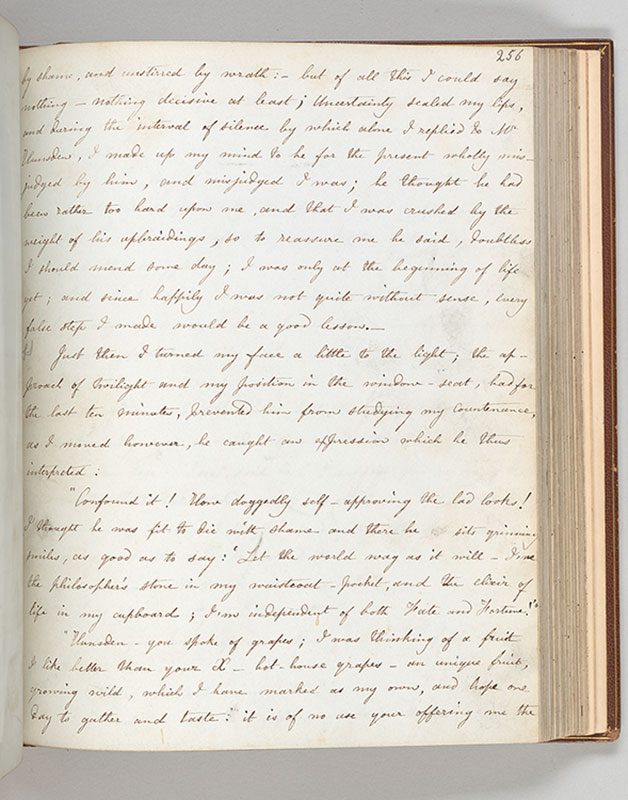 256
by shame, and unstirred by wrath:- but of all this I could say
nothing - nothing decisive at least; Uncertainty sealed my lips,
and during the interval of silence by which alone I replied to Mr
Hunsden, I made up my mind to be for the present wholly mis-
judged by him, and misjudged I was; he thought he had
been rather too hard upon me, and that I was crushed by the
weight of his upbraidings, so to reassure me he said, doubtless
I should mend some day; I was only at the beginning of life
yet; and since happily I was not quite without sense, every
false step I made would be a good lesson.-
Just then I turned my face a little to the light; the ap-
proach of twilight and my position in the window-seat, had for
the last ten minutes, prevented him from studying my countenance,
as I moved however, he caught an expression which he thus
interpreted:
"Confound it! How doggedly self-approving the lad looks!
I thought he was fit to die with shame and there he sits grinning
smiles, as good as to say:' Let the world wag as it will - I've
the philosopher's stone in my waistcoat-pocket, and the elixir of
life in my cupboard; I'm independent of both Fate and Fortune!'"
"Hunsden - you spoke of grapes; I was thinking of a fruit
I like better than your X - hot-house grapes - an unique fruit,
growing wild, which I have marked as my own, and hope one
day to gather and taste: it is of no use your offering me the